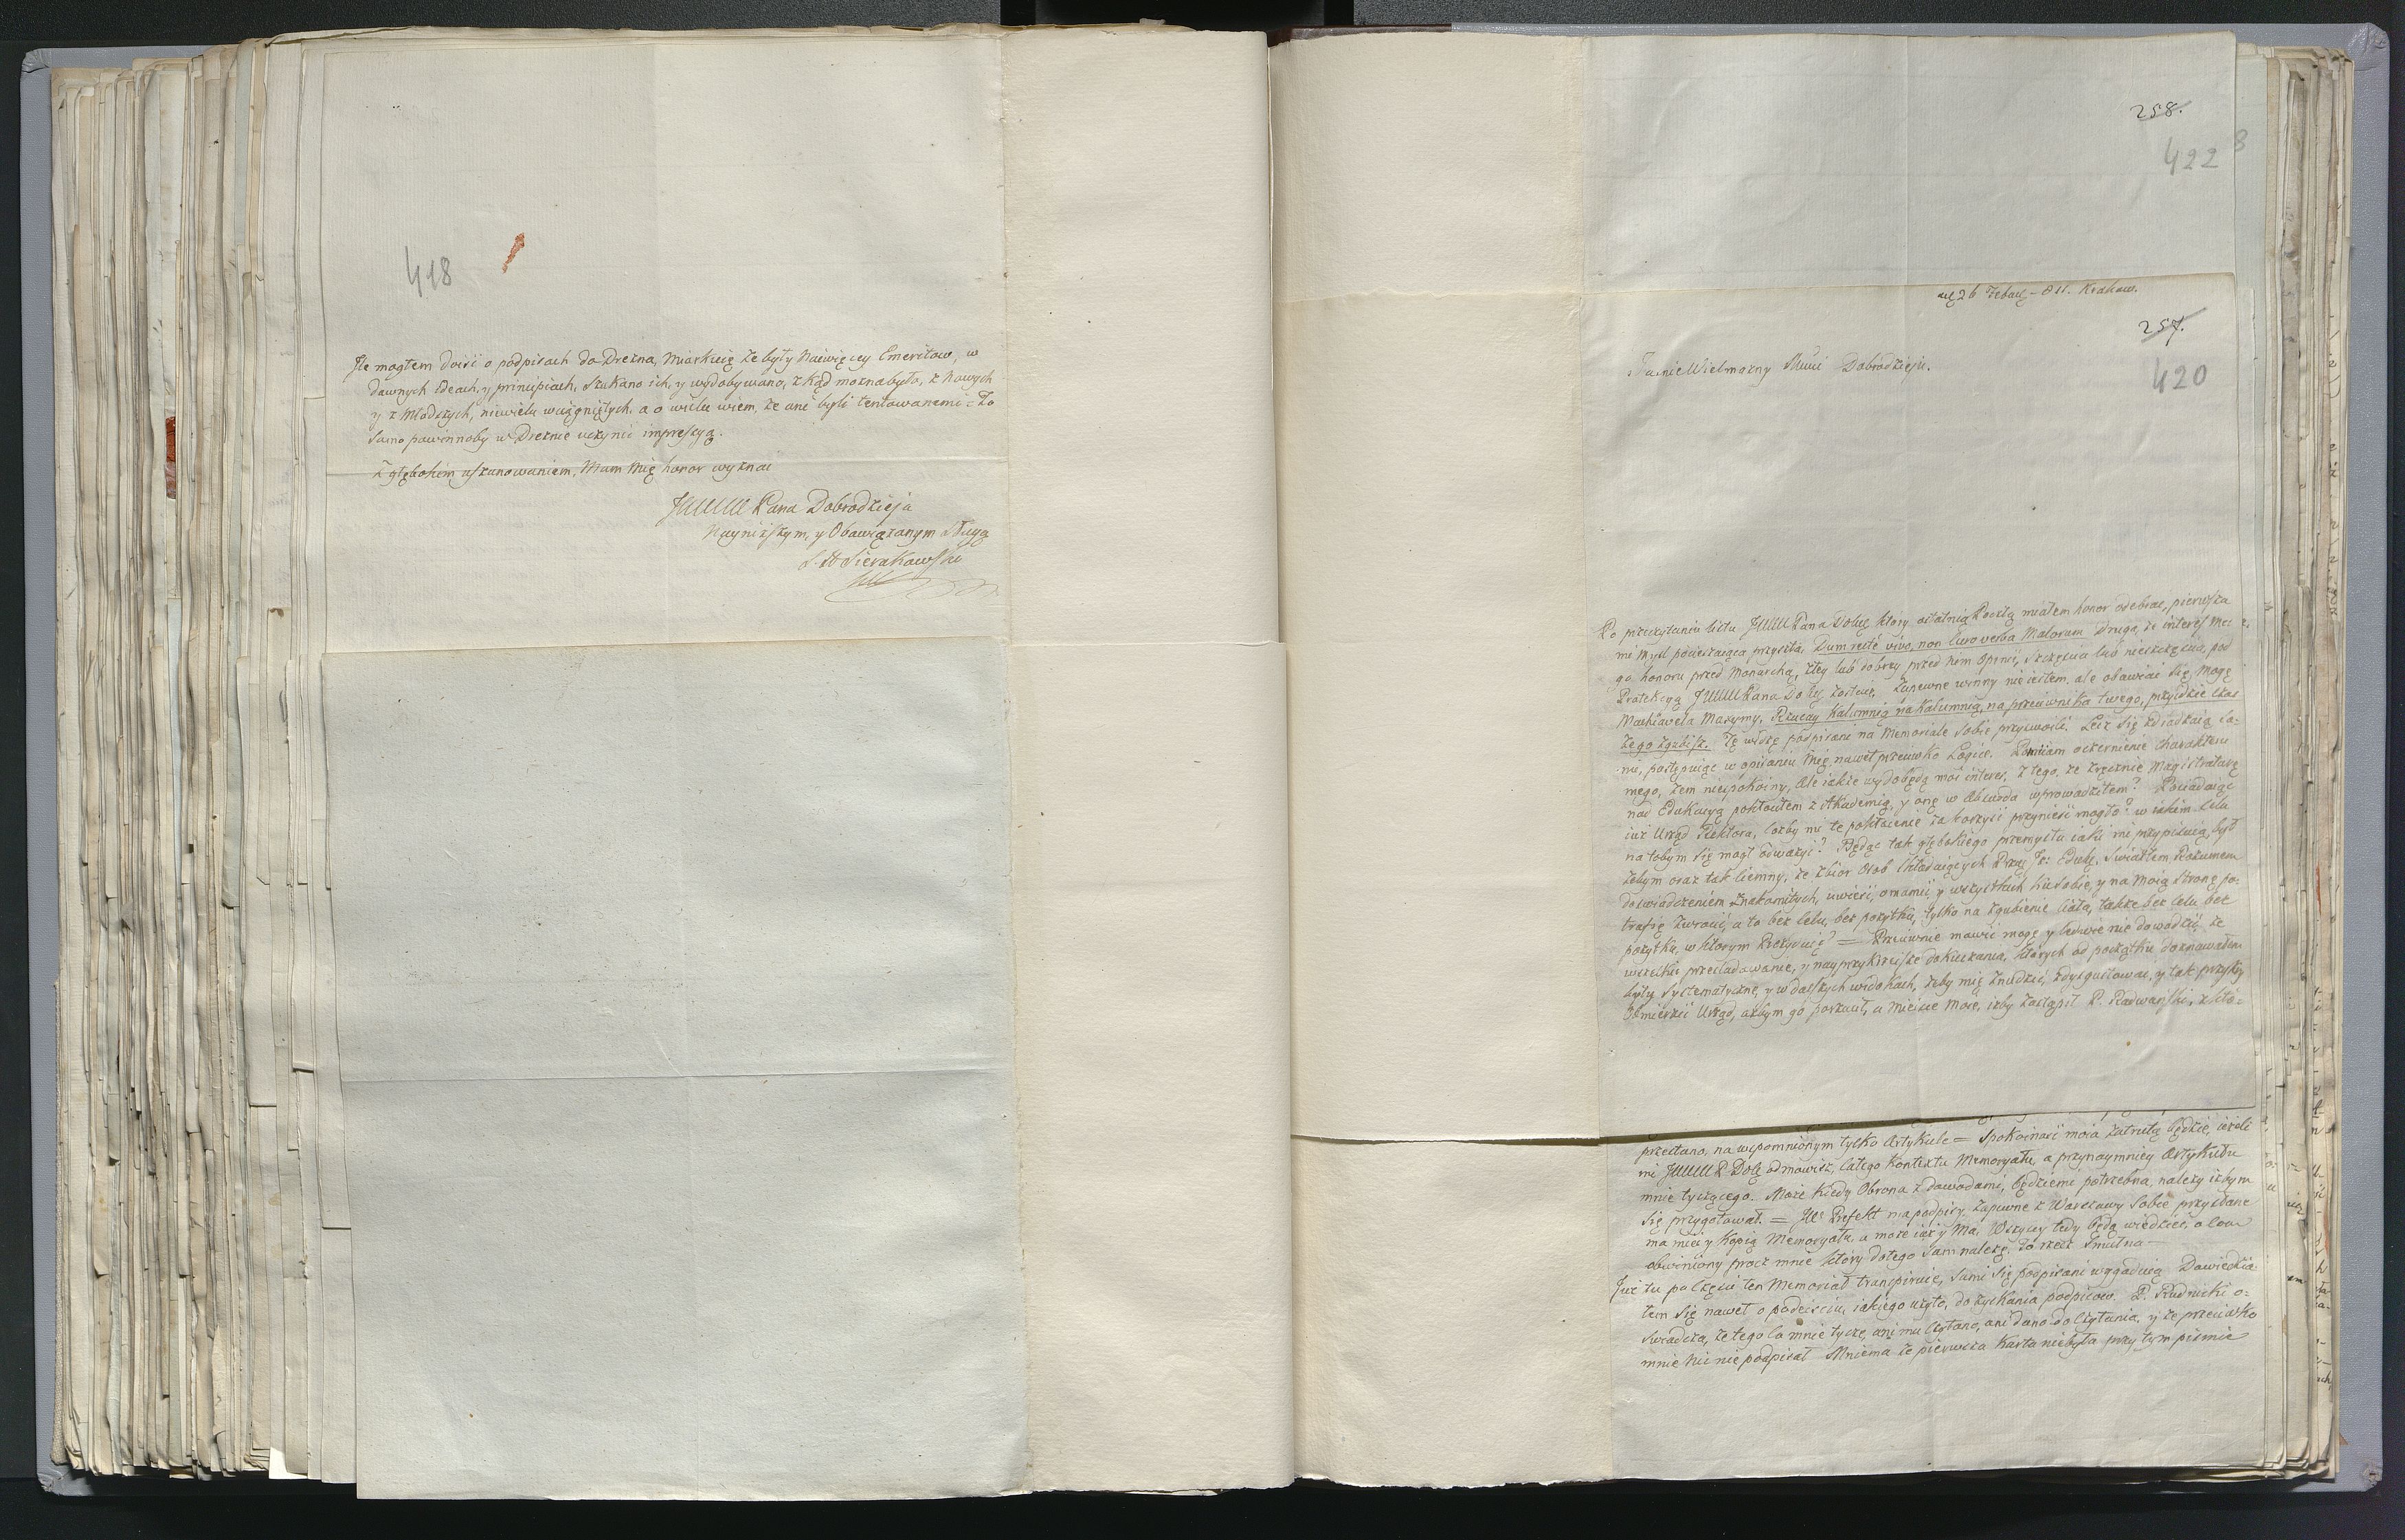 418
Ile mogłem doiść o podpisach do Drezna, Miarkuię że były naiwięcey Emeritow, w
dawnych Ideach, y principiach, Szukano ich, y wydobywano, z kąd można było, z nowych
y z Młodszych, niewielu wciągniętych. a o wielu wiem, że ani byli tentowanemi = To
samo powinnoby w Dreznie uczynić impressyą.
Z głębokim uszanowaniem, Mam Mię honor wyznać
JWWW Pana Dobrodzieja
Nayniższym, y Obowiązanym Sługą
Sierakowski
258.
422
8
26 Febr - 811. Krakow.
257.
420
JaśnieWielmożny Mości Dobrodzieju.
Po przeczytaniu listu JWWW Pana Dobę który ostatnią Pocztą miałem honor odebrać, pierwsza
mi myśl pocieszaiąca przyszła, Dum recté vivo, non curo verba Malorum Druga, że interes Me-
go honoru przed Monarchą, złey lub dobrey przed nim Opinii, Szczęścia lub nieszczęścia, pod
Protekcyą JWWW Pana Dobę zostaie. Zapewne winny nie iestem. ale obawiać się, Mogę
Machiavela Maxymy, Rzucay Kalumnią na Kalumnią, na przeciwnika twego, przyidzie czas
że go zgubisz. Tę widzę podpisani na Memoriale sobie przyswoili. Lecz się zdradzaią sa-
mi, postępuiąc w opisaniu Mię, nawet przeciwko Logice. Pomiiam oczernienie charakteru
mego, żem niespokoiny, Ale iakże wydobędą mói interes, z tego, że zręcznie Magistraturę
nad Edukacyą pokłóciłem z Akademią, y onę w Absurda wprowadziłem? Posiadaiąc
iuż Urząd Rektora, cożby mi te pokłócenie za korzyść przynieść mogło? w iakim celu
na tobym się mogł odważyć? Będąc tak głębokiego przemysłu iaki mi przypisuią, był
żebym oraz tak ciemny, że zbiór Osob składaiących Edukę, Światłem Rozumem
doświadczeniem znakomitych, uwieść, omamić, y wszystkich ku sobie, y na Moią Stronę po-
trafię zwrócić, a to bez celu, bez pożytku, tylko na zgubienie ciała, także bez celu, bez
pożytku, w którym Prezyduię? = Przeciwnie mowić mogę y ledwie nie dowodzić, że
wszelkie prześladowanie, y nayprzykrzeisze dokuczania, których od początku doznawałem
były systematyczne, y w dalszych widokach, żeby mię znudzić, zdysgustować, y tak przykry
Obmierzić Urząd, ażbym go porzucił, a Mieisce Moie, iżby zastąpił P. Radwański, z któ-
przestano, na wspomnionym tylko Artykule = Spokoiność moia zatruta będzie, ieżeli
mi JWWW P Dobę odmowisz, całego Kontextu Memoryału, a przynaymniey Artykułu
mnie tyczącego. Może kiedy Obrona z dowodami, będziemi potrzebna, należy iżbym
się przygotował. = JW Prefekt ma podpisy, zapewne z Warszawy Sobie przysłane
ma mieć y Kopią Memoryału, a może iuż y Ma, Wszyscy tedy będą wiedzieć, o com
obwiniony procz mnie który do tego sam należę. To rzecz Smutna —
Już tu po części ten Memoriał transpiruie, Sami Się podpisani wygaduią Dowiedzia-
łem Się nawet o podeiściu, iakiego użyto, do zyskania podpisow. P. Rudnicki o-
świadcza, że tego co mnie tyczę, ani mu czytano, ani dano do Czytania, y że przeciwko
mnie Nic nie podpisał Mniema że pierwsza Karta niebyła przy tym piśmie